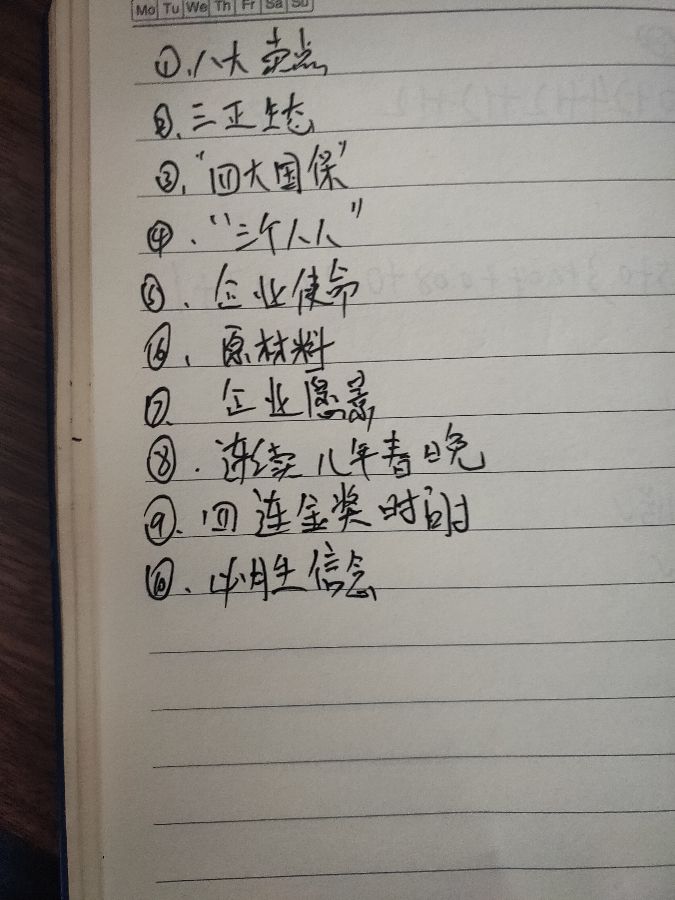 Mo Tu We Th Fr Sa Su
①.八大卖点
②.三正生态
③."四大国保"
④."三个人人"
⑤.企业使命
⑥.原材料
⑦.企业愿景
⑧.连续几年春晚
⑨.四连金奖时间
⑩.必胜信念